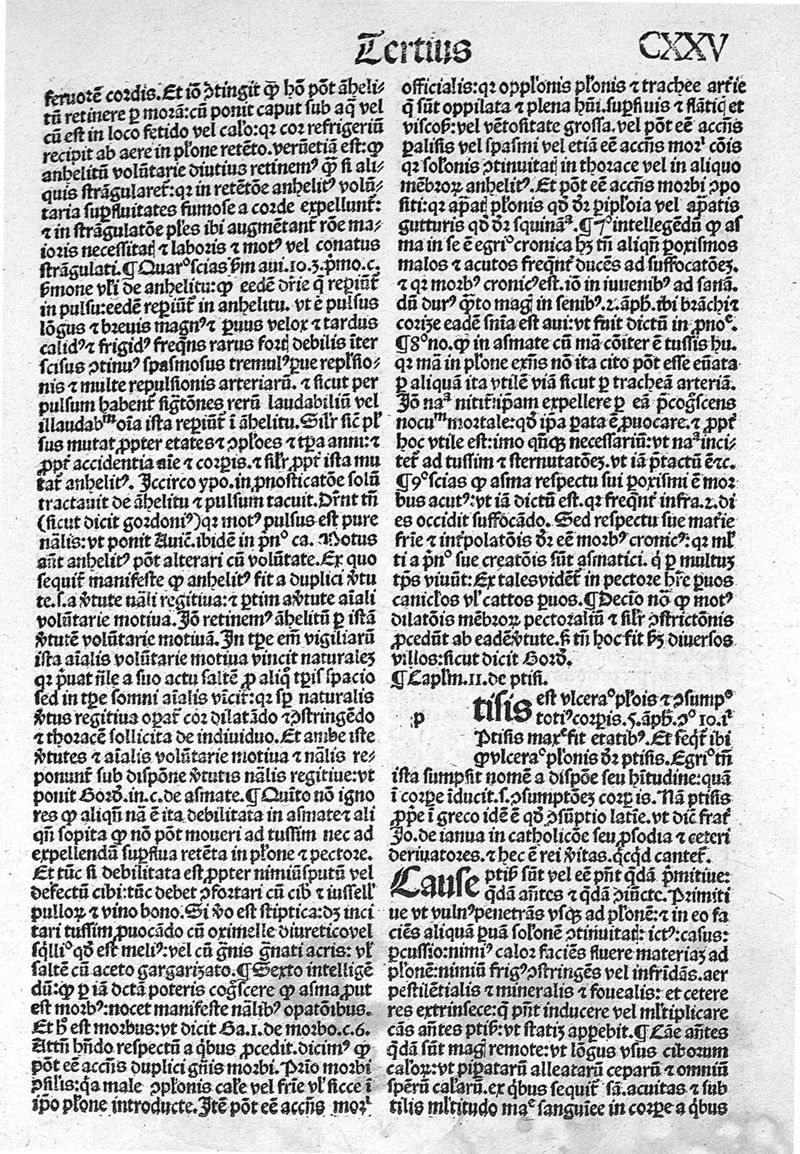 Tertius
CXXV
feruorē cordis. Et iō ꝯtingit ꝙ hō pōt āheli-
tū retinere ꝑ morā: cū ponit caput sub aq̄ vel
cū est in loco fetido vel cal̓o: qr cor refrigeriū
recipit ab aere in pl̓one retēto. verūetiā est: ꝙ
anhelitū volūtarie diutius retinemꝰ ꝙ̄ si ali-
quis strāgularet᷑: qr in retētōe anhelitꝰ volū-
taria suꝑfluitates fumose a corde expellunt᷑:
⁊ in strāgulatōe pl̓es ibi augmētant᷑ rōe ma-
ioris necessitat̄ ⁊ laboris ⁊ motꝰ vel conatus
strāgulati. ¶Quarᵒ scias ẜm aui. 10. 3. pͥmo. c.
ẜmone vl̓i de anhelitu: ꝙ eedē dr̄ie q̄ reꝑiūt᷑
in pulsu: eedē reꝑiūt᷑ in anhelitu. vt ē pulsus
lōgus ⁊ breuis magnꝰ ⁊ ꝑuus velox ⁊ tardus
calidꝰ ⁊ frigidꝰ freqn̄s rarus fort̄ debilis īter
scisus ꝯtinuꝰ spasmosus tremulꝰ ꝑue repl̓sio-
nis ⁊ multe repulsionis arteriarū. ⁊ sicut per
pulsum habent᷑ sigt̄ones rerū laudabiliū vel
illaudabᵐ oīa ista reꝑiūt᷑ ī āhelitu. Sil̓r sic̄ pl̓
sus mutat᷑ ꝓpter etates ⁊ ꝯpl̓oes ⁊ tꝑa anni: ⁊
ꝓpt᷑ accidentia aīe ⁊ corꝑis. ⁊ sil̓r ꝓpt᷑ ista mu
tat᷑ anhelitꝰ. Iccirco ypo. in pnosticatōe solū
tractauit de āhelitu ⁊ pulsum tacuit. Dr̄nt tn̄
(sicut dicit gordoniꝰ) qr motꝰ pulsus est pure
nālis: vt ponit Auic̄. ibidē in pͥnᵒ ca. Motus
aūt anhelitꝰ pōt alterari cū volūtate. Ex quo
sequit᷑ manifeste ꝙ anhelitꝰ fit a duplici v̓tu
te. s. a v̓tute nāli regitiua: ⁊ ꝑtim a v̓tute aīali
volūtarie motiua. Iō retinemꝰ āhelitū ꝑ istā
v̓tutē volūtarie motiuā. In tꝑe em̄ vigiliarū
ista aīalis volūtarie motiua vincit naturalez
qr pͥuat n̄le a suo actu saltē ꝓ aliqͦ tꝑis spacio
sed in tꝑe somni aīalis vīcit᷑: qr sꝑ naturalis
v̓tus regitiua oꝑat᷑ cōr dilatādo ⁊ ꝯstringēdo
⁊ thoracē sollicita de indiuiduo. Et ambe iste
v̓tutes ⁊ aīalis volūtarie motiua ⁊ nālis re-
ponunt᷑ sub dispōne v̓tutis nālis regitiue: vt
ponit Gorð. in. c. de asmate. ¶Quīto nō igno
res ꝙ aliqn̄ nā ē ita debilitata in asmate ⁊ ali
qn̄ sopita ꝙ nō pōt moueri ad tussim nec ad
expellendā suꝑflua retēta in pl̓one ⁊ pectore.
Et tūc si debilitata est ꝓpter nimiū sputū vel
defectū cibi: tūc debet ꝯfortari cū cibꝭ ⁊ iussell̓
pulloꝝ ⁊ vino bono. Si v̓o est stiptica: dz inci
tari tussim ꝓuocādo cū oximelle diuretico vel
sqͥlliᵒ qð est meliꝰ: vel cū gͥnis gn̄ati acris: vl̓
saltē cū aceto gargarizato. ¶Sexto intelligē
dū: ꝙ ꝑ iā dc̄tā poteris cogn̄scere ꝙ asma, put
est morbꝰ: nocet manifeste nālibꝰ oꝑatōibus.
Et hͦ est morbus: vt dicit Ga. 1. de morbo. c. 6.
Attn̄ hn̄do respectū a qͥbus ꝓcedit. dicimꝰ ꝙ
pōt eē accn̄s duplici gn̄is morbi. Prio morbi
ꝯsilis: qa male ꝯpl̓onis cal̓e vel fri̓e vl̓ sicce ī
ip̄o pl̓one introducte. Itē pōt eē accn̄s morͥ
officialis: qr oppl̓onis pl̓onis ⁊ trachee art̓ie
q̄ sūt oppilata ⁊ plena hūi. suꝑfluis ⁊ flātiqͥ et
viscoẜ: vel vētositate grossa. vel pōt eē accn̄s
ꝑalisis vel spasmi vel etiā eē accn̄s morͥ cōis
qr sol̓onis ꝯtinuitat̄ in thorace vel in aliquo
mēbroꝝ anhelitꝰ. Et pōt eē accn̄s morbi ꝯpo
siti: qr ap̄at̄ pl̓onis qð dr̄ ꝑipl̓oia vel ap̄atis
gutturis qð dr̄ squināᵃ. ¶7ᵒ intellegēdū ꝙ as
ma in se ē egriᵒ cronica hz tn̄ aliqn̄ ꝑoxismos
malos ⁊ acutos freqn̄t᷑ ducēs ad suffocatōez.
⁊ qr morbꝰ cronicꝰ est. iō in iuuenibꝰ ad sanā.
dū durꝰ qͥto magꝭ in senibꝰ. 2. āph. ibi brāchi ⁊
corize eadē sn̄ia est aui: vt fuit dictū in ꝓnoᶜ.
¶8ᵒ nō. ꝙ in asmate cū mā cōiter ē tussis hu.
qr mā in pl̓one exn̄s nō ita cito pōt esse euata
ꝑ aliquā ita vtilē viā sicut ꝑ tracheā arteriā.
Iō naᵃ nitit᷑: ip̄am expellere ꝑ eā p̄cogͥscens
nocuᵐ mortale: qð ip̄a parata ē ꝓuocare. ⁊ ꝓpt᷑
hoc vtile est: imo qn̄qꝫ necessariū: vt naᵃ inci-
tet᷑ ad tussim ⁊ sternutatōez. vt iā p̄tactū ē ⁊c.
¶9ᵒ scias ꝙ asma respectu sui ꝑoxismi ē mor
bus acutꝰ: vt iā dictū est. qr freqn̄t᷑ infra. 2. di
es occidit suffocādo. Sed respectu sue mat̓ie
fri̓e ⁊ int᷑polatōis dr̄ eē morbꝰ cronicꝰ: qr ml̓
ti a pͥnᵒ sue creatōis sūt asmatici. qͥ ꝑ multuz
tp̄s viuūt: Ex tales vidēt᷑ in pectore hr̄e ꝑuos
caniclos vl̓ cattos ꝑuos. ¶Decīo nō ꝙ motꝰ
dilatōis mēbroꝝ pectoraliū ⁊ sil̓r ꝯstrictōnis
ꝓcedūt ab eadē v̓tute. ẜ tn̄ hoc fit ẜz diuersos
villos: sicut dicit Gorð.
¶Capl̓m. 11. de ptisi.
:p tisis est vlceraᵒ pl̓ois ⁊ ꝯsumpᵒ
totiꝰ corꝑis. 5. āph. ꝯᵒ 10. iᵗ
Ptisis maxᵉ fit etatibꝰ. Et seqt᷑ ibi
ꝙ vlceraᵒ pl̓onis dr̄ ptisis. Egriᵒ tn̄
ista sumpsit nomē a dispōe seu hītudine: quā
ī corꝑe īducit. s. ꝯsumptōez corꝑis. Nā ptisis
ꝓpͥe ī greco idē ē qð ꝯsūptio latīe. vt dic̄ frat᷑
Io. de ianua in catholicōe seu ꝓsodia ⁊ ceteri
deriuatores. ⁊ hec ē rei v̓itas. qͥcqͥd cantet᷑.
Cause ptiẜ sūt vel eē pn̄t qͥdā pͥmitiue:
qͥdā an̄tes ⁊ qͥdā ꝯiūcte. Primiti
ue vt vulnꝰ penetrās vsqꝫ ad pl̓onē: ⁊ in eo fa
ciēs aliquā ꝑuā sol̓onē ꝯtinuitat̄: ictꝰ: casus:
ꝑcussio: nimiꝰ calor faciēs fluere materiaz ad
pl̓onē: nimiū frigꝰ ꝯstringēs vel infrīdās. aer
pestilētialis ⁊ mineralis ⁊ fouealis: et cetere
res extrinsece: qͥ pn̄t inducere vel ml̓tiplicare
cās an̄tes ptiẜ: vt statiz apꝑebit. ¶Cāe an̄tes
qͥdā sūt magꝭ remote: vt lōgus vsus ciborum
cal̓oꝝ: vt piꝑatarū alleatarū ceparū ⁊ omniū
spērū cal̓arū. ex qͥbus sequit᷑ sā. acuitas ⁊ sub
tilis ml̓titudo maᵉ sanguiēe in corꝑe a qͥbus